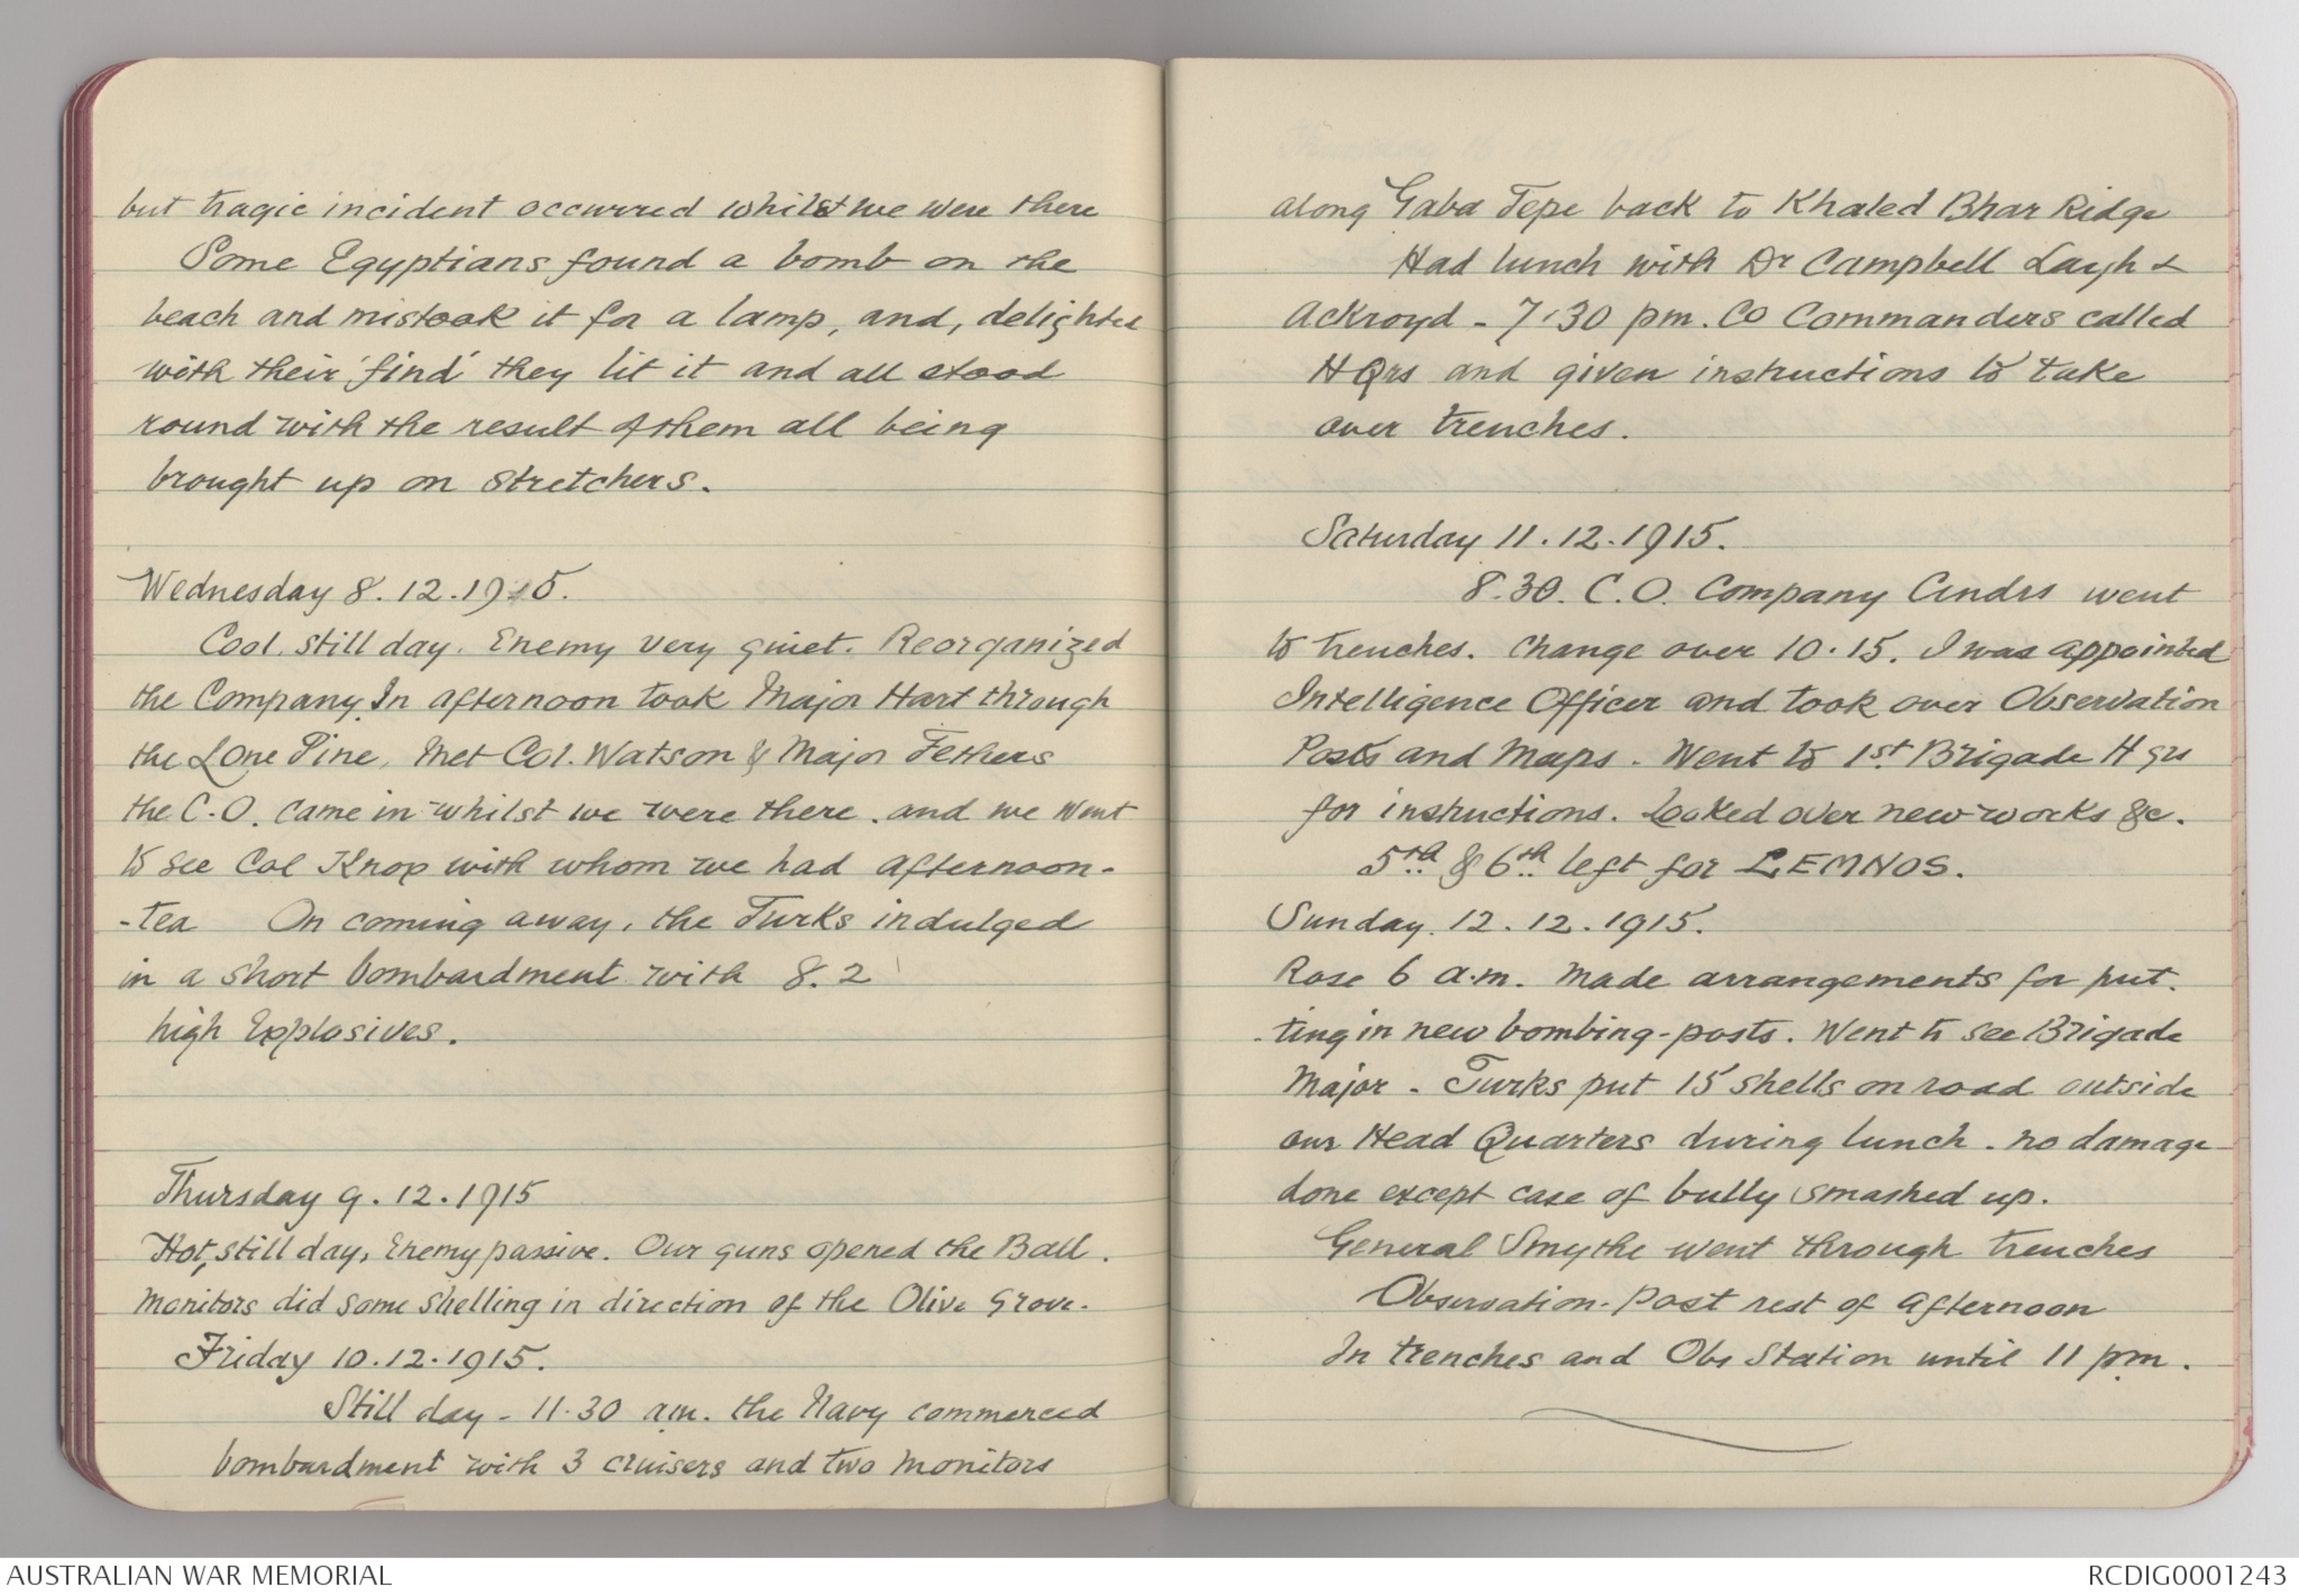 but tragic incident occurred whilst we were there
Some Egyptians found a bomb on the
beach and mistook it for a lamp, and, delighted
with their 'find' they lit it and all stood
round with the result of them all being
brought up on stretchers.
Wednesday 8.12.1915.
Cool, still day. Enemy very quiet. Reorganized
the Company. In afternoon took Major Hart through
the Lone Pine, Met Col. Watson & Major Fethers
the C.O. came in whilst we were there. and we went
to see Col Knox with whom we had afternoon-
-tea On coming away, the Turks indulged
in a short bombardment with 8.2
high Explosives.
Thursday 9.12.1915
Hot, still day, Enemy passive. Our guns opened the Ball.
Monitors did some shelling in direction of the Olive Grove.
Friday 10.12.1915.
Still day - 11.30 a.m. the Navy commenced
bombardment with 3 cruisers and two monitors
along Gaba Tepe back to Khaled Bhar Ridge
Had lunch with Dr Campbell Layh &
Ackroyd - 7.30 pm. Co Commanders called
HQrs and given instructions to take
over trenches.
Saturday 11.12.1915.
8.30. C.O. Company Cmdrs went
to trenches. Change over 10.15. I was appointed
Intelligence Officer and took over Observation
Posts and Maps. Went to 1st Brigade Hqrs
for instructions. Looked over new works &c.
5th & 6th left for LEMNOS.
Sunday. 12.12.1915.
Rose 6 a.m. Made arrangements for put.
-ting in new bombing-posts. Went to see Brigade
Major - Turks put 15 shells on road outside
our Head Quarters during lunch. no damage
done except case of bully smashed up.
General Smythe went through trenches
Observation-Post rest of afternoon
In trenches and Obs Station until 11 pm.
AUSTRALIAN WAR MEMORIAL
RCDIG0001243